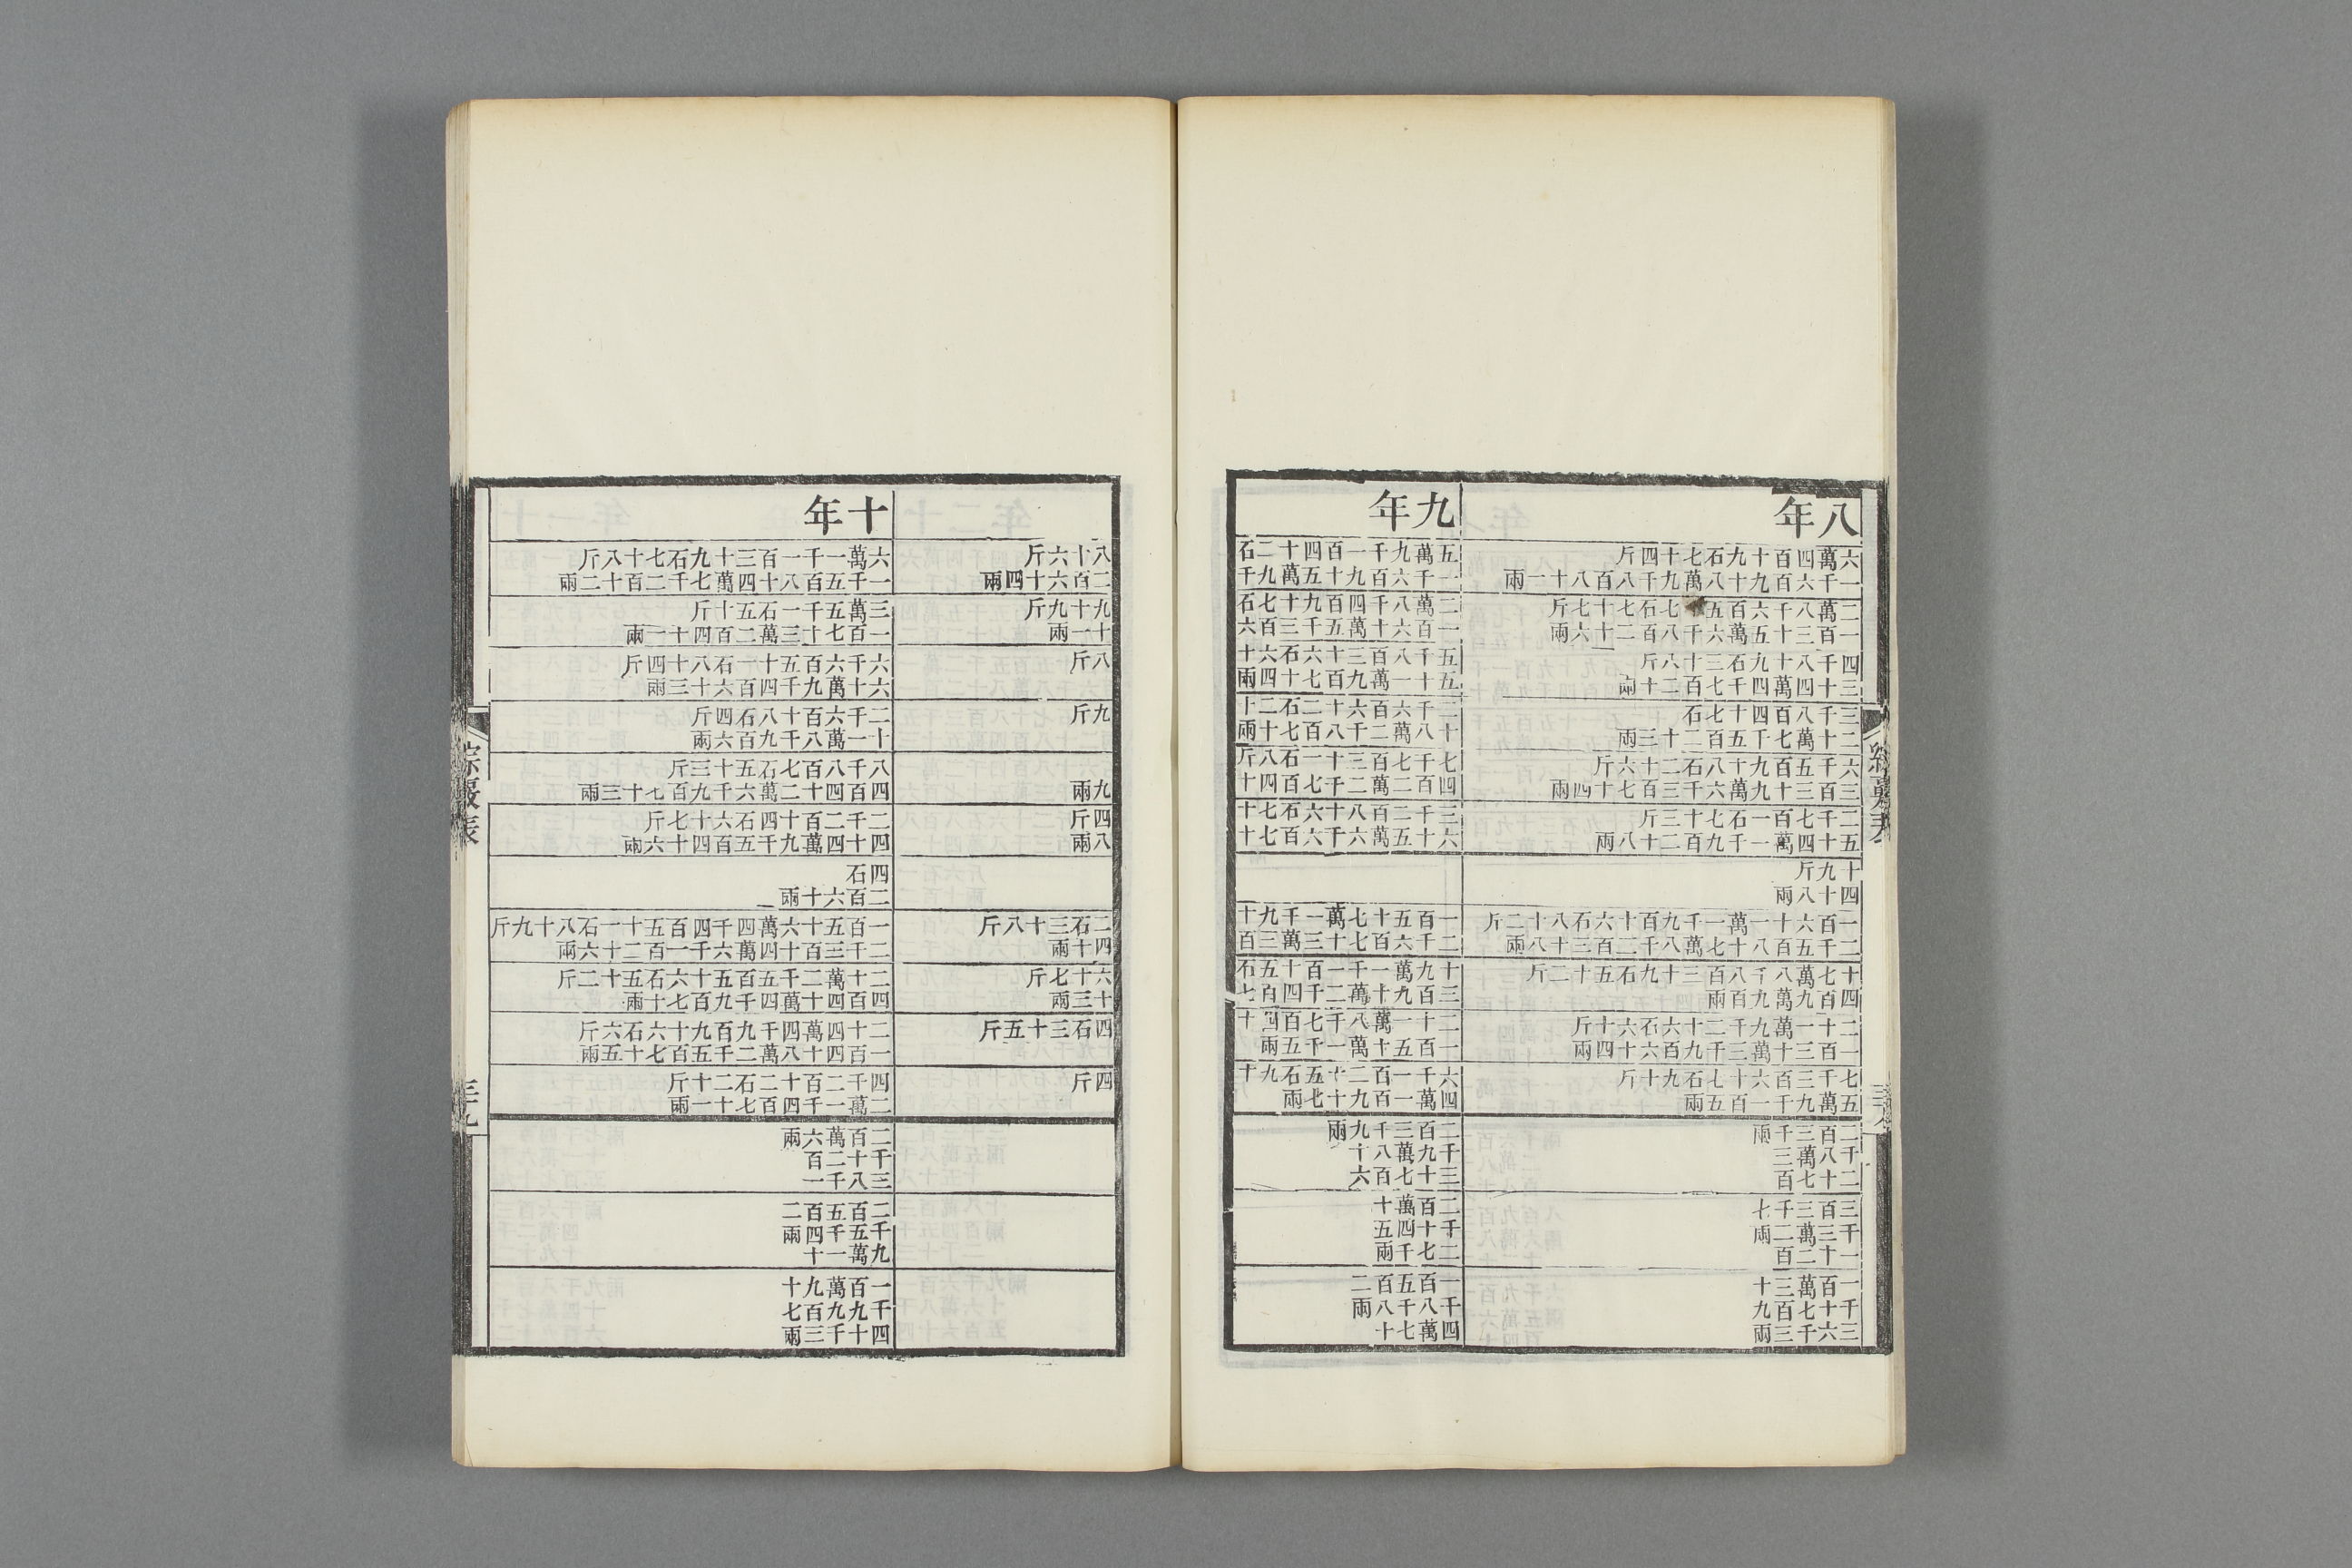 八年
六萬四百十九石七十四斤
一千六百九十八萬九千八百八十一兩
二萬八千六百五十七石七十七斤
一百三十五萬六千八百二十六兩
四千八十九石三十八斤
三十四萬四千七百二十兩
三千八百四十七石
二十萬七千五百二十三兩
六千五百九十八石二十六斤
三百三十九萬六千三百七十四兩
二千七百一石七十三斤
五十四萬一千九百二十八兩
十九斤
四十八兩
一百六十一萬一千九百十六石八十二斤
二千五百八十七萬八千二百三十八兩
十七萬八千八百三十九石五十二斤
四百九萬九百兩
二十一萬九千二十六石六十斤
一百三十萬三千九百六十四兩
七千三百六十七石九十斤
五萬九千一百五兩
二千二
百八十
三萬七
千三百
兩
三千一
百三十
三萬二
千二百
七兩
一千三
百十六
萬七千
三百三
十九兩
九年
五萬九千一百四十二石
一千六百九十五萬九千
二萬八千四百九十七石
一百六十萬五千三百六
五千八百三十六石六十
五十一萬九百七十四兩
三千六百六十二石二十
十八萬二千八百七十兩
七千七百三十一石八斤
四百二萬二千七百四十
三千二百八十六石七十
六十五萬六千六百七十
一百五十七萬一千九十
二千六百七十三萬三百
十九萬一千一百十五石
三百九十一萬二千四百七
二十一萬八千七百四十
一百五十萬一千五兩
六千一百二十五石九十
四萬一百九十七兩
二千三
百九十
三萬七
千八百
九十六
兩
二千二
百十七
萬四千
十五兩
一千四
百八萬
五千七
百八十
二兩
八十六斤
二百六十四兩
九十九斤
十一兩
八斤
九斤
九兩
四斤
八兩
二石三十八斤
四十兩
六十七斤
十三兩
四石三十五斤
四斤
十年
六萬一千一百三十九石七十八斤
一千五百八十四萬七千二百十二兩
三萬五千一石五十斤
一百七十三萬二百四十一兩
六千六百五十一石八十四斤
六十萬九千四百六十三兩
二千六百十八石四斤
十一萬八千九百六兩
八千八百七石五十三斤
四百四十二萬六千九百七十三兩
二千二百十四石六十七斤
四十四萬九千五百四十六兩
四石
二百六十兩
一百五十六萬四千四百五十一石八十九斤
二千三百十四萬六千一百二十六兩
二十萬二千五百五十六石五十二斤
四百四十萬四千九百七十兩
二十四萬四千九百九十六石六斤
一百四十八萬二千五百七十五兩
四千二百十二石二十斤
二萬一千四百七十一兩
二千三
百十八
萬二千
六百一
兩
二千九
百五萬
五千一
百四十
二兩
一千四
百九十
萬九千
九百三
十七兩
綜覈表